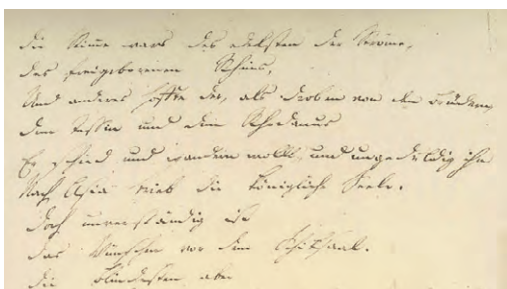 Die Stimme wars des edelsten der Ströme,
Des freigeborenen Rheins,
Und anderes hoffte der, als droben von den Brüdern,
Dem Tessin und dem Rhodanus
Er schied und wandern wollt, und ungeduldig ihn
Nach Asia trieb die königliche Seele.
Doch unverständig ist
Das Wünschen vor dem Schiksaal.
Die Blindesten aber